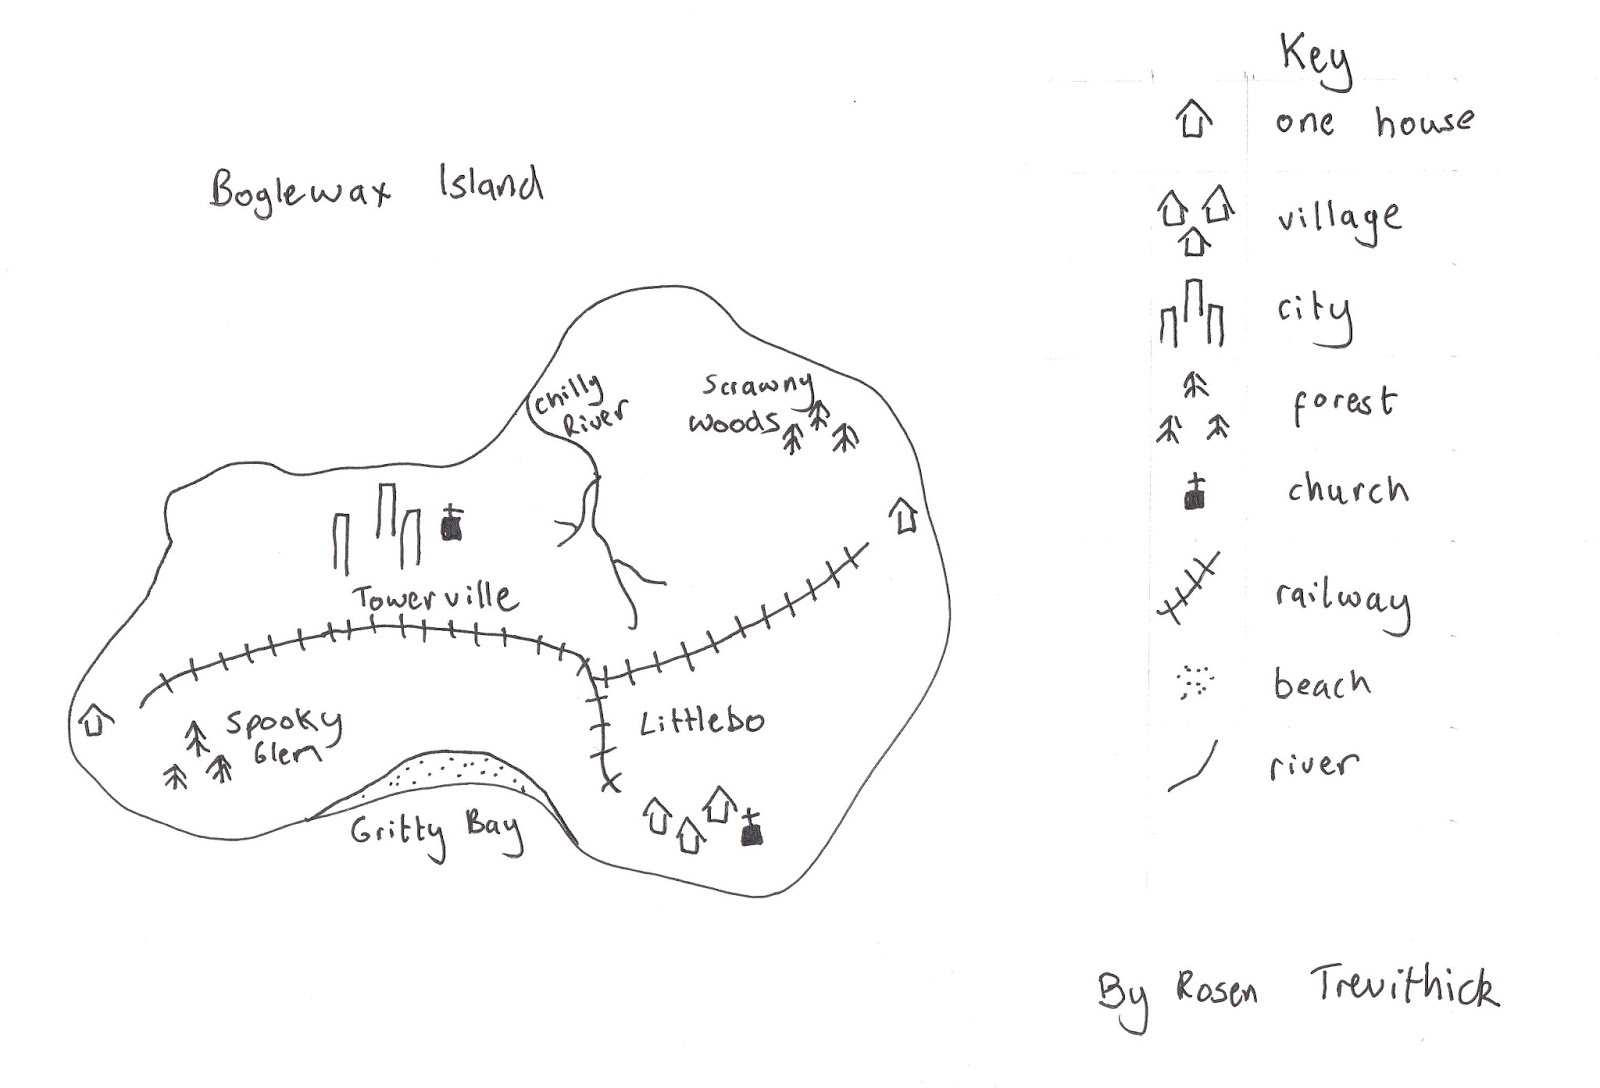 Key
one house
village
city
forest
church
railway
beach
river
Boglewax Island
Chilly
River
Scrawny
Woods
Towerville
Spooky
Glen
Littlebo
Gritty Bay
By Rosen Trevithick